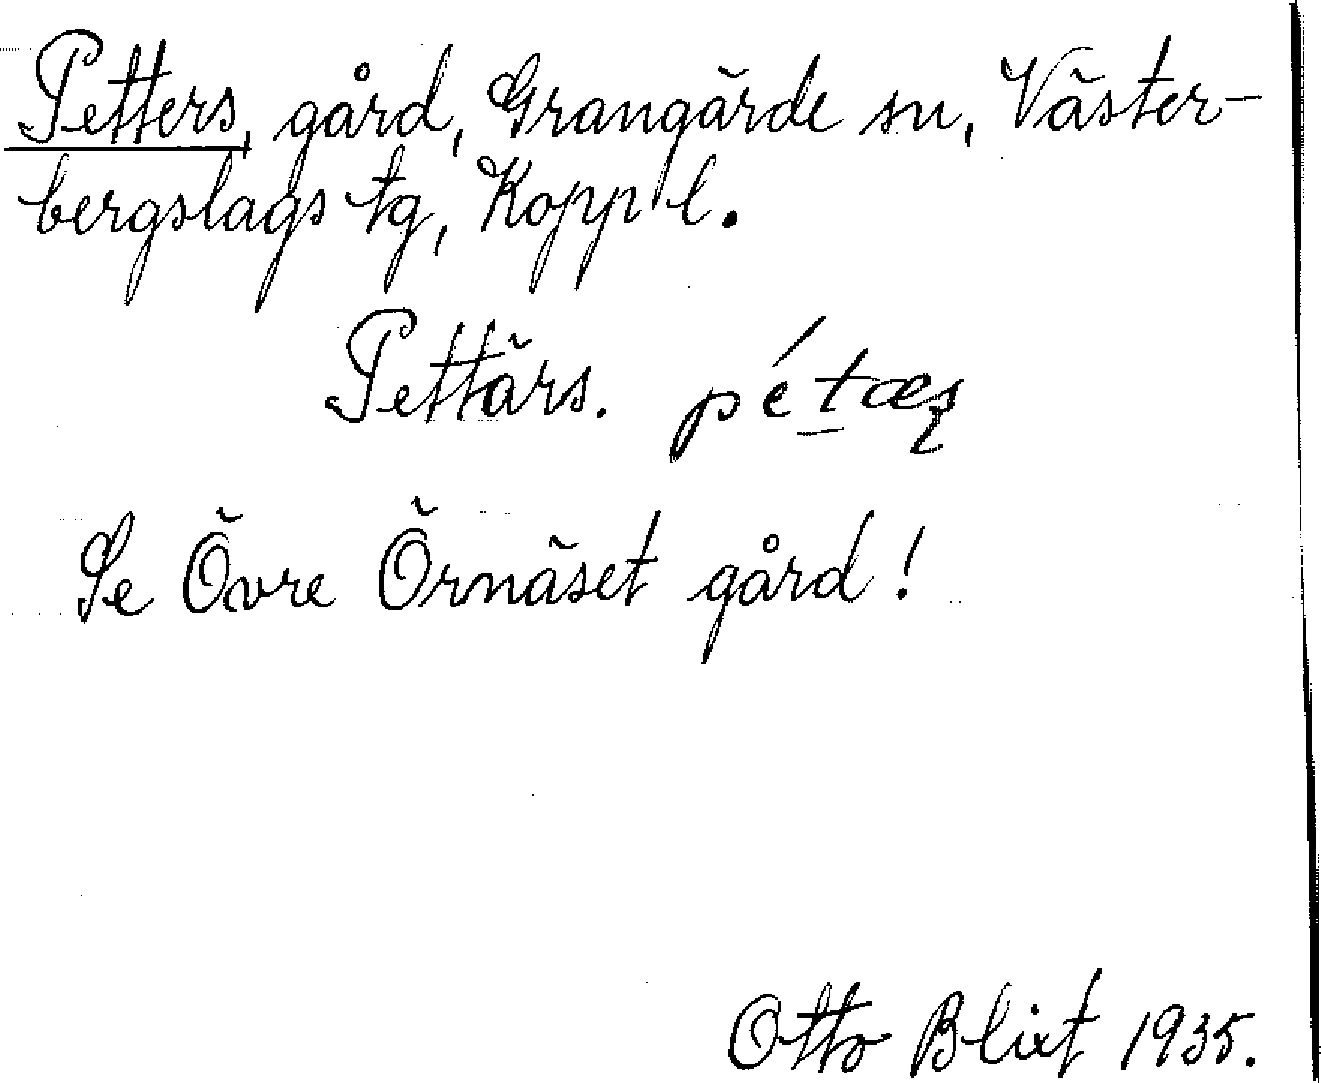 Petters, gård, Grangärde sn, Väster-
bergslags tg, Kopp l.
Pettärs. pétæʂ
Se Övre Örnäset gård!
Otto Blixt 1935.